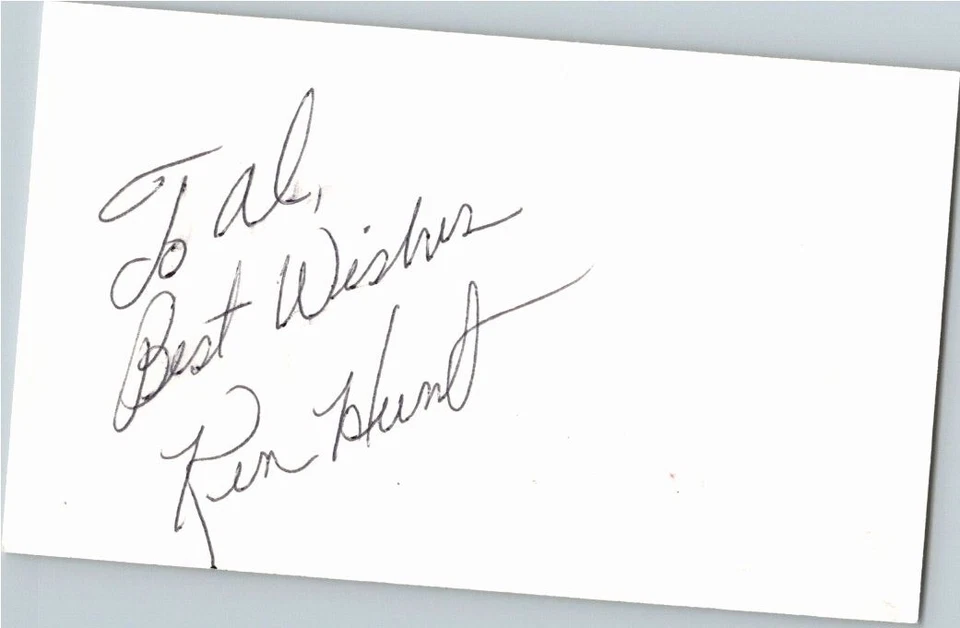 To Al,
Best Wishes
Ken Hunt